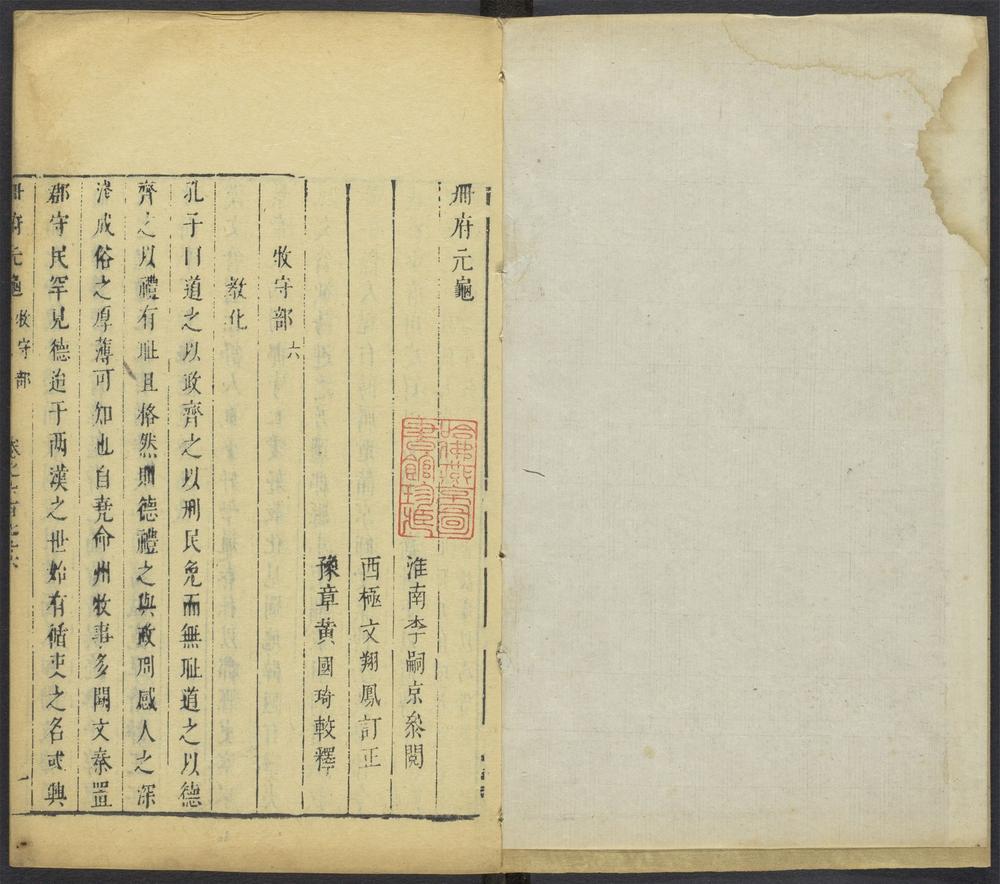 冊府元龜
淮南李嗣京㕘閱
西極文翔鳳訂正
豫章黃國琦較釋
牧守部六
教化
孔子曰道之以政齊之以刑民免而無恥道之以德
齊之以禮有恥且格然則德禮之與政刑感人之深
淺成俗之厚薄可知也自堯命州牧事多闕文秦罝
郡守民罕見德迨于两漢之世始有循吏之名或興
冊府元龜 牧守部
哈佛燕京圖
書館珍藏